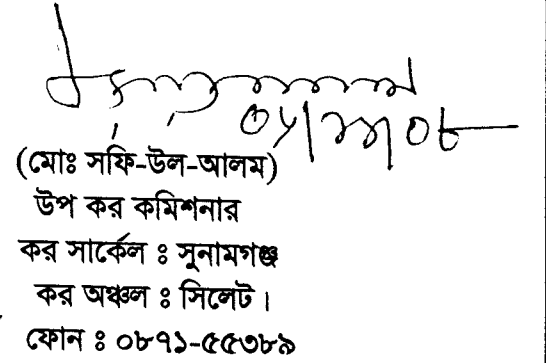 (মোঃ সফি-উল-আলম)
উপ কর কমিশনার
কর সার্কেল ঃ সুনামগঞ্জ
কর অঞ্চল ঃ সিলেট।
ফোন ঃ ০৮৭১-৫৫৩৮৯